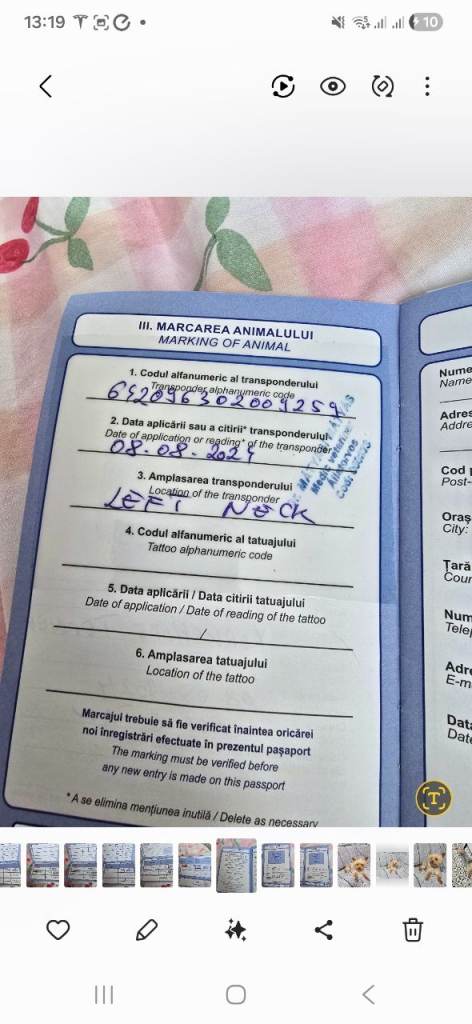 13:19
10
III. MARCAREA ANIMALULUI
MARKING OF ANIMAL
1. Codul alfanumeric al transponderului
Transponder alphanumeric code
642096302009259
2. Data aplicării sau a citirii* transponderului
Date of application or reading* of the transponder
08.08.2024
3. Amplasarea transponderului
Location of the transponder
LEFT NECK
4. Codul alfanumeric al tatuajului
Tattoo alphanumeric code
5. Data aplicării / Data citirii tatuajului
Date of application / Date of reading of the tattoo
/
6. Amplasarea tatuajului
Location of the tattoo
Marcajul trebuie să fie verificat înaintea oricărei
noi înregistrări efectuate în prezentul pașaport
The marking must be verified before
any new entry is made on this passport
* A se elimina mențiunea inutilă / Delete as necessary
Nume
Name
Adres
Addre
Cod
Post-
Oraș
City:
Țară
Coun
Num
Telep
Adre
E-m
Data
Date
T